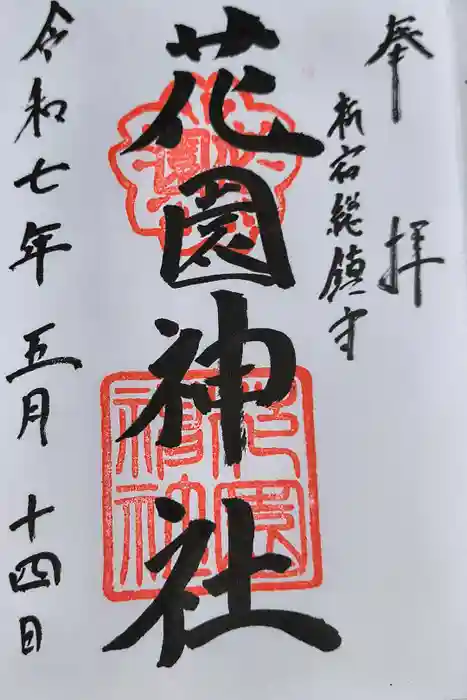 奉拝
新宿総鎮守
花園神社
花園神社
令和七年五月十四日